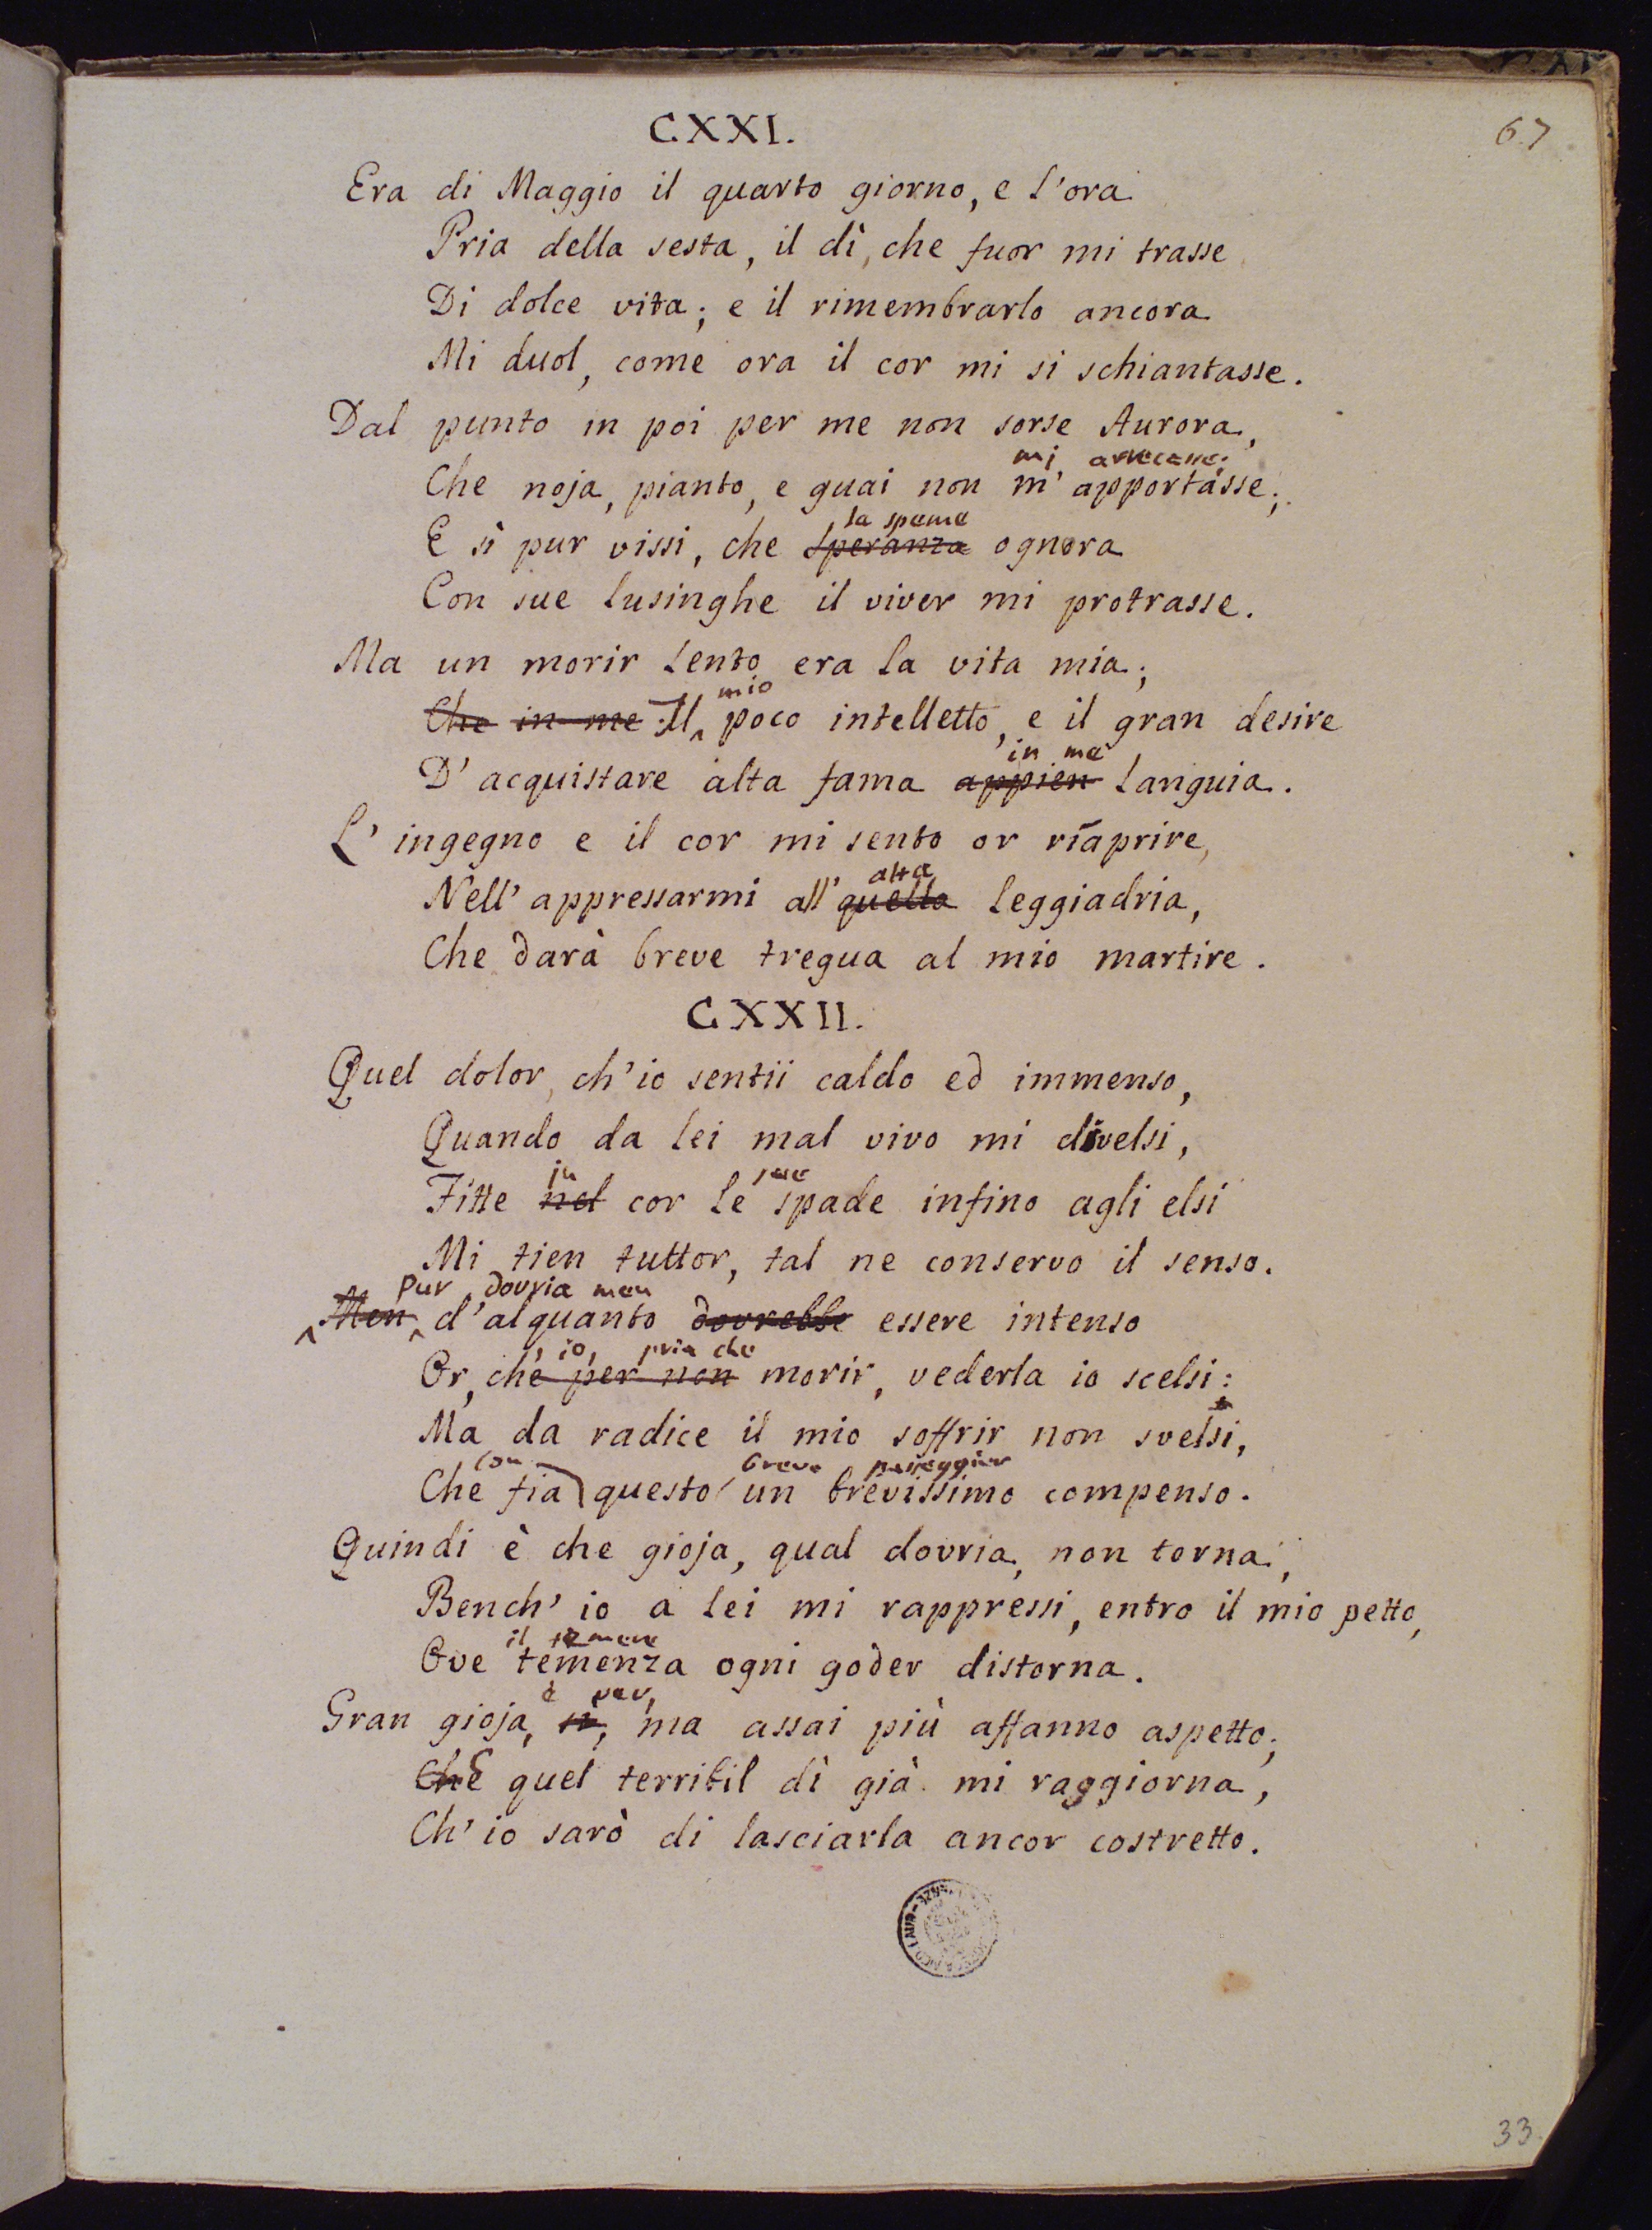 67
CXXI.
Era di Maggio il quarto giorno, e l'ora
Pria della sesta, il dì, che fuor mi trasse
Di dolce vita; e il rimembrarlo ancora
Mi duol, come ora il cor mi si schiantasse.
Dal punto in poi per me non sorse Aurora,
mi arrecasse;
Che noja, pianto, e guai non m'apportasse;
la speme
E sì pur vissi, che speranza ognora
Con sue lusinghe il viver mi protrasse.
Ma un morir lento era la vita mia;
mio
Che in me Il poco intelletto, e il gran desire
in me
D'acquistare alta fama appien languia.
L'ingegno e il cor mi sento or riaprire,
alta
Nell'appressarmi all' quella leggiadria,
Che darà breve tregua al mio martire.
CXXII.
Quel dolor, ch'io sentii caldo ed immenso,
Quando da lei mal vivo mi divelsi,
in sue
Fitte nel cor le spade infino agli elsi
Mi tien tuttor, tal ne conservo il senso.
Pur dovria men
Men d'alquanto dovrebbe essere intenso
io, pria che
Or, che per non morir, vederla io scelsi:
Ma da radice il mio soffrir non svelsi,
Con breve passeggier
Che fia questo un brevissimo compenso.
Quindi è che gioja, qual dovria, non torna,
Bench'io a lei mi rappressi, entro il mio petto,
il temere
Ove temenza ogni goder distorna.
è ver,
Gran gioja, sì, ma assai più affanno aspetto;
Che quel terribil dì già mi raggiorna,
Ch'io sarò di lasciarla ancor costretto.
33